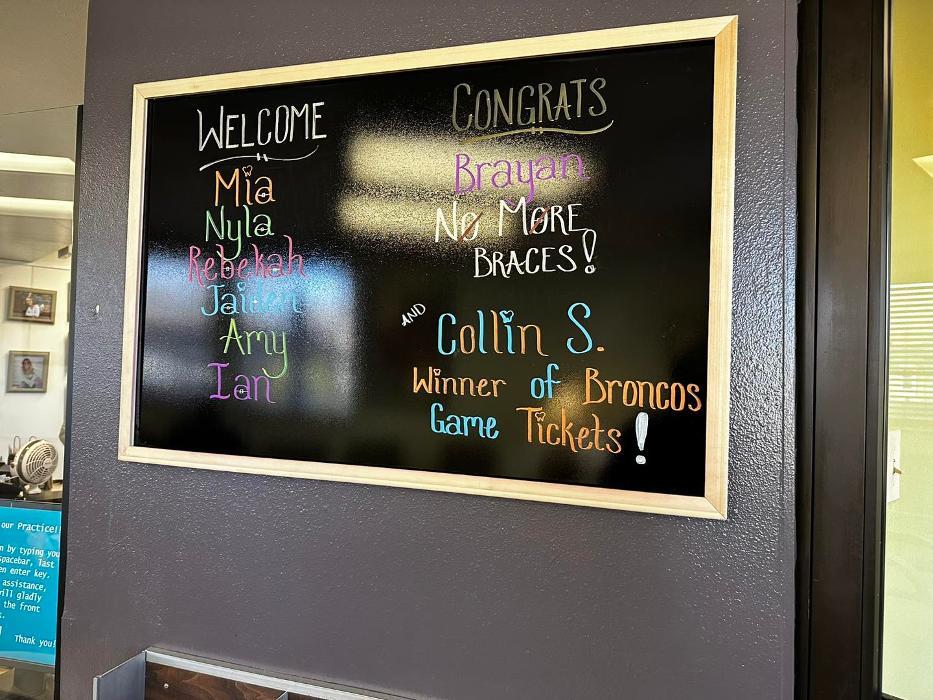 WELCOME
Mia
Nyla
Rebekah
Jaiden
Amy
Ian
CONGRATS
Brayan
NO MORE
BRACES!
AND
Collin S.
Winner of Broncos
Game Tickets!
our Practice!!
by typing you
spacebar, last
enter key.
assistance,
gladly
the front
Thank you!